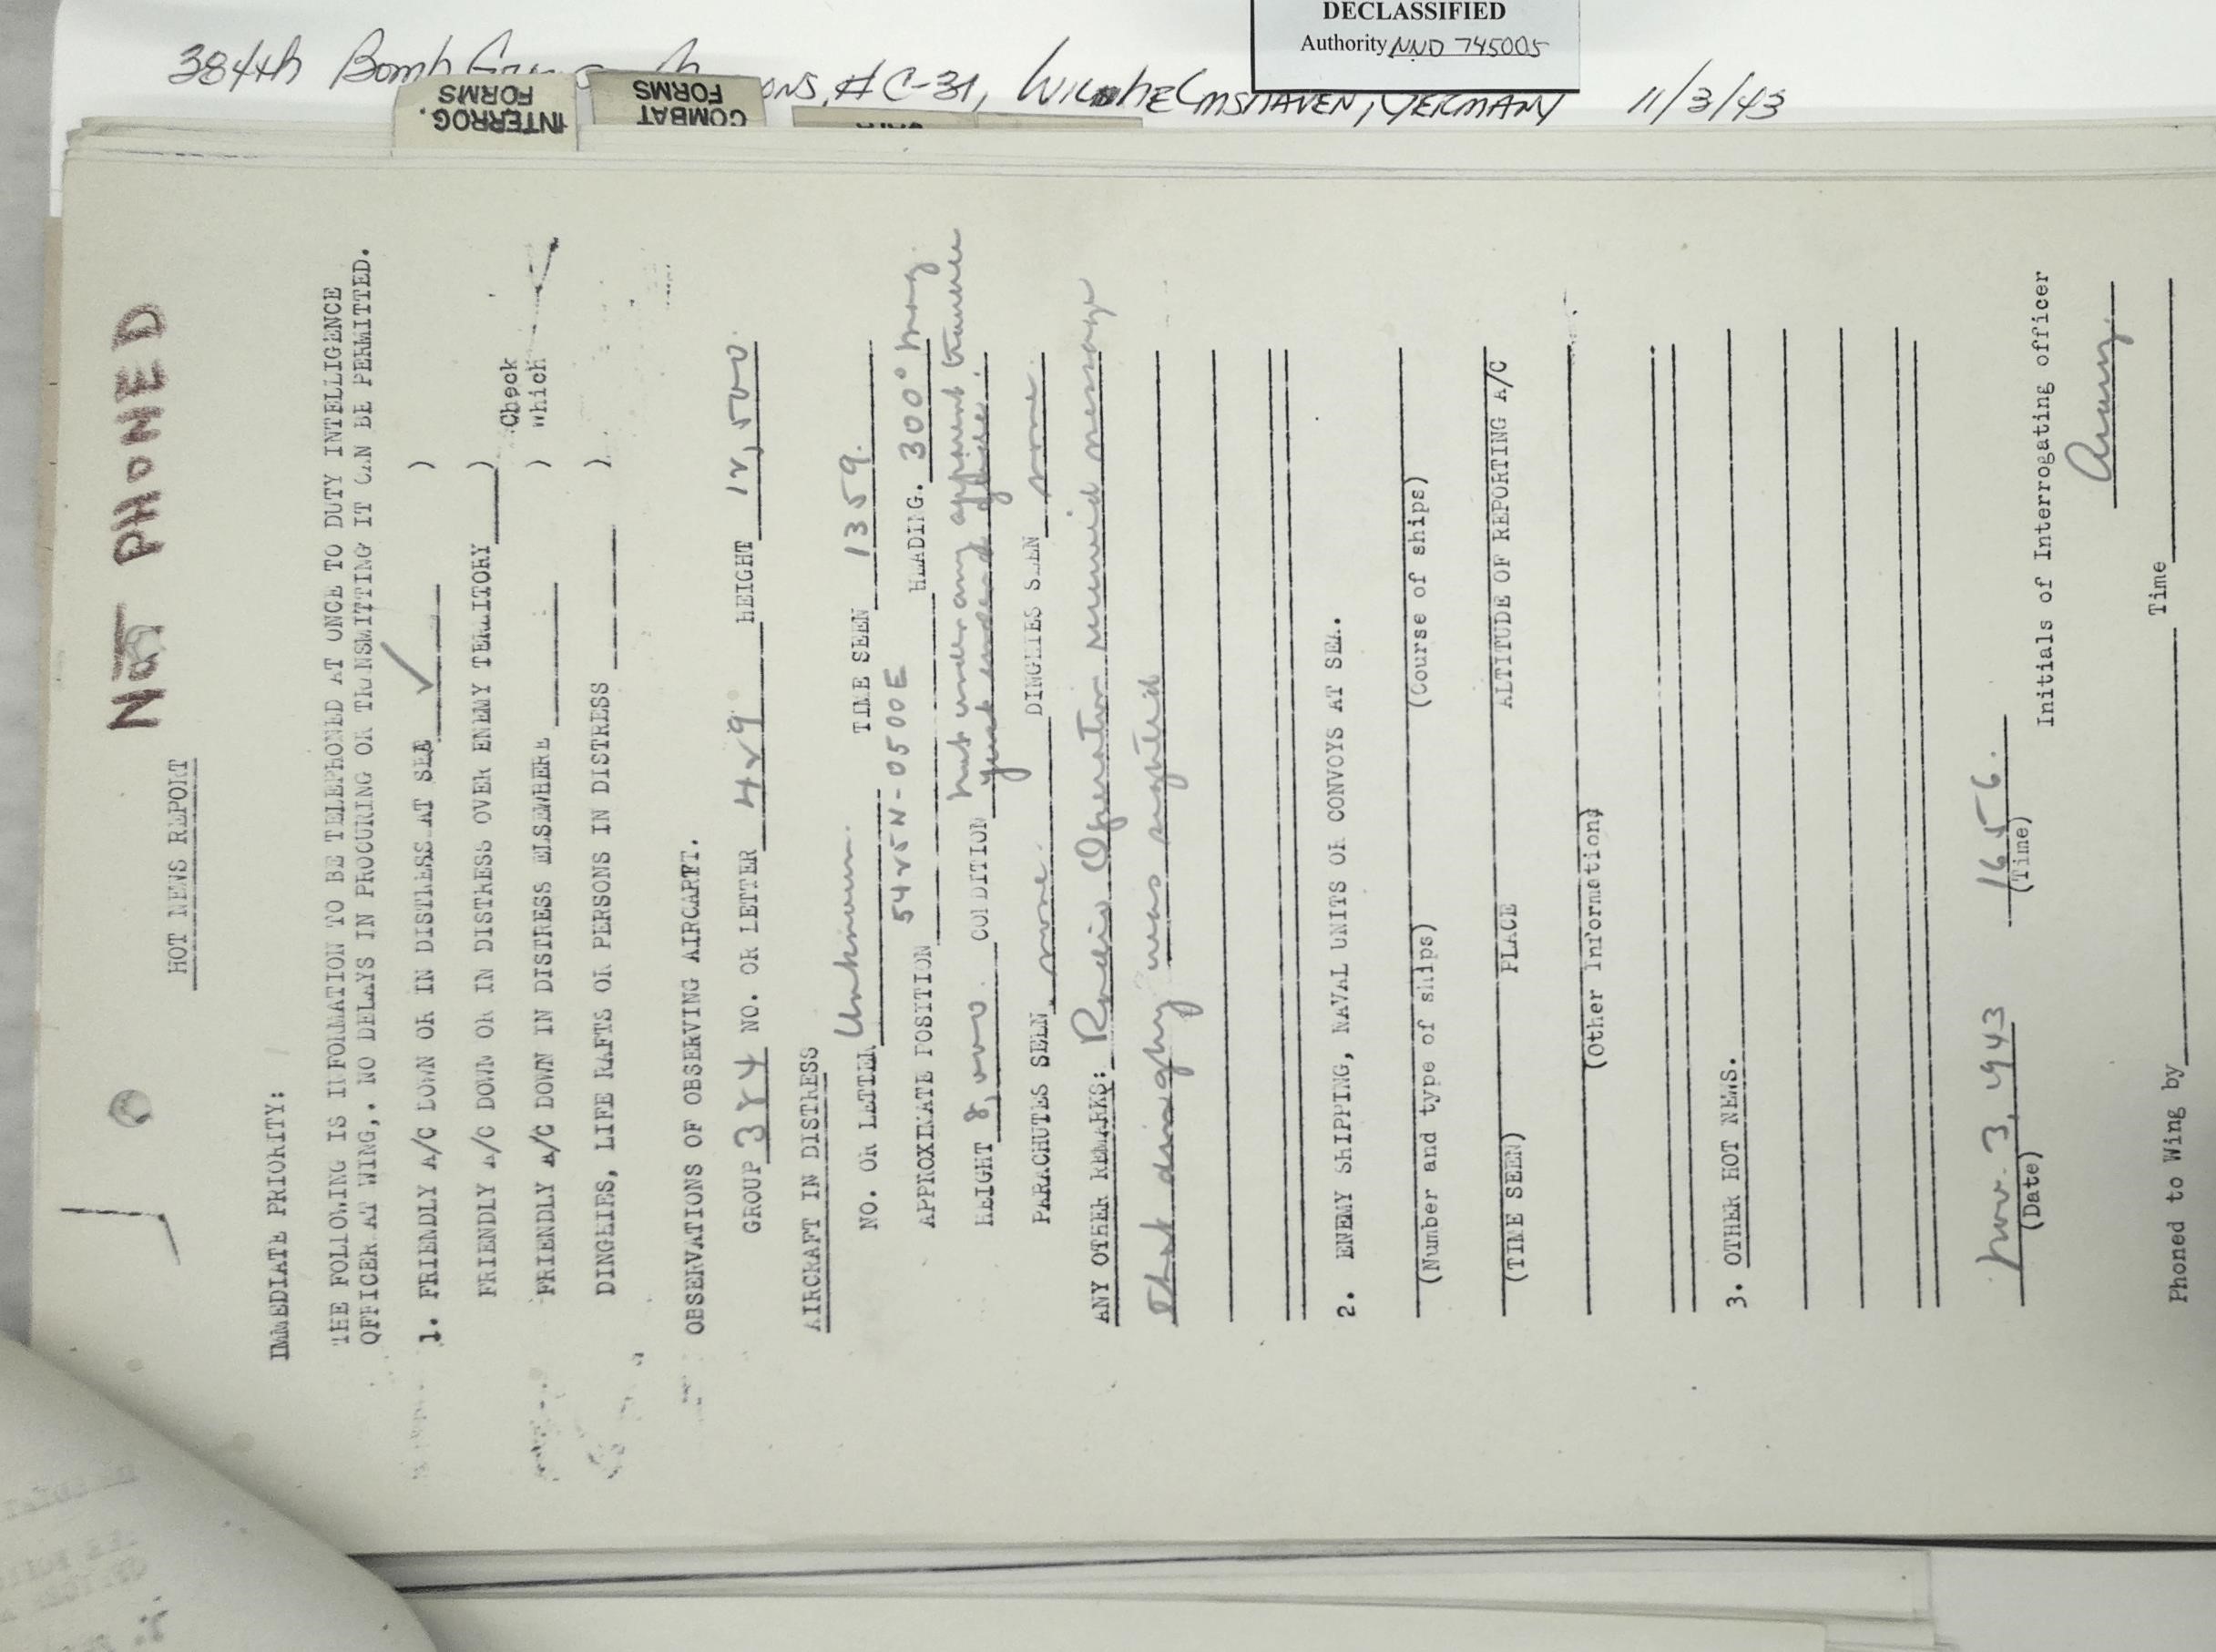 DECLASSIFIED
Authority NND 745005
384th Bomb ONS, # C-31, WILHELMSHAVEN, GERMANY 11/3/43
INTERROG.
FORMS
COMBAT
FORMS
NOT PHONED
HOT NEWS REPORT
IMMEDIATE PRIORITY:
THE FOLLOWING IS INFORMATION TO BE TELEPHONED AT ONCE TO DUTY INTELLIGENCE
OFFICER AT WING,. NO DELAYS IN PROCURING OR TRANSMITTING IT CAN BE PERMITTED.
1. FRIENDLY A/C DOWN OR IN DISTRESS AT SEA ✓ )
FRIENDLY A/C DOWN OR IN DISTRESS OVER ENEMY TERRITORY ) Check
FRIENDLY A/C DOWN IN DISTRESS ELSEWHERE ) which
DINGHIES, LIFE RAFTS OR PERSONS IN DISTRESS )
OBSERVATIONS OF OBSERVING AIRCARFT.
GROUP 384 NO. OR LETTER 429 HEIGHT 12,500
AIRCRAFT IN DISTRESS
NO. OR LETTER Unknown. TIME SEEN 1359.
APPROXIMATE POSITION 5425N-0500E HEADING. 300° mag.
HEIGHT 8,000. CONDITION not under any apparent trouble
PARACHUTES SEEN none. DINGHIES SEEN none.
ANY OTHER REMARKS: Radio Operator received message
that dinghy was sighted
2. ENEMY SHIPPING, NAVAL UNITS OR CONVOYS AT SEA.
(Number and type of ships) (Course of ships)
(TIME SEEN) PLACE ALTITUDE OF REPORTING A/C
(Other Information)
3. OTHER HOT NEWS.
Nov. 3, 1943 1656.
(Date) (Time)
Initials of Interrogating officer
Phoned to Wing by Time